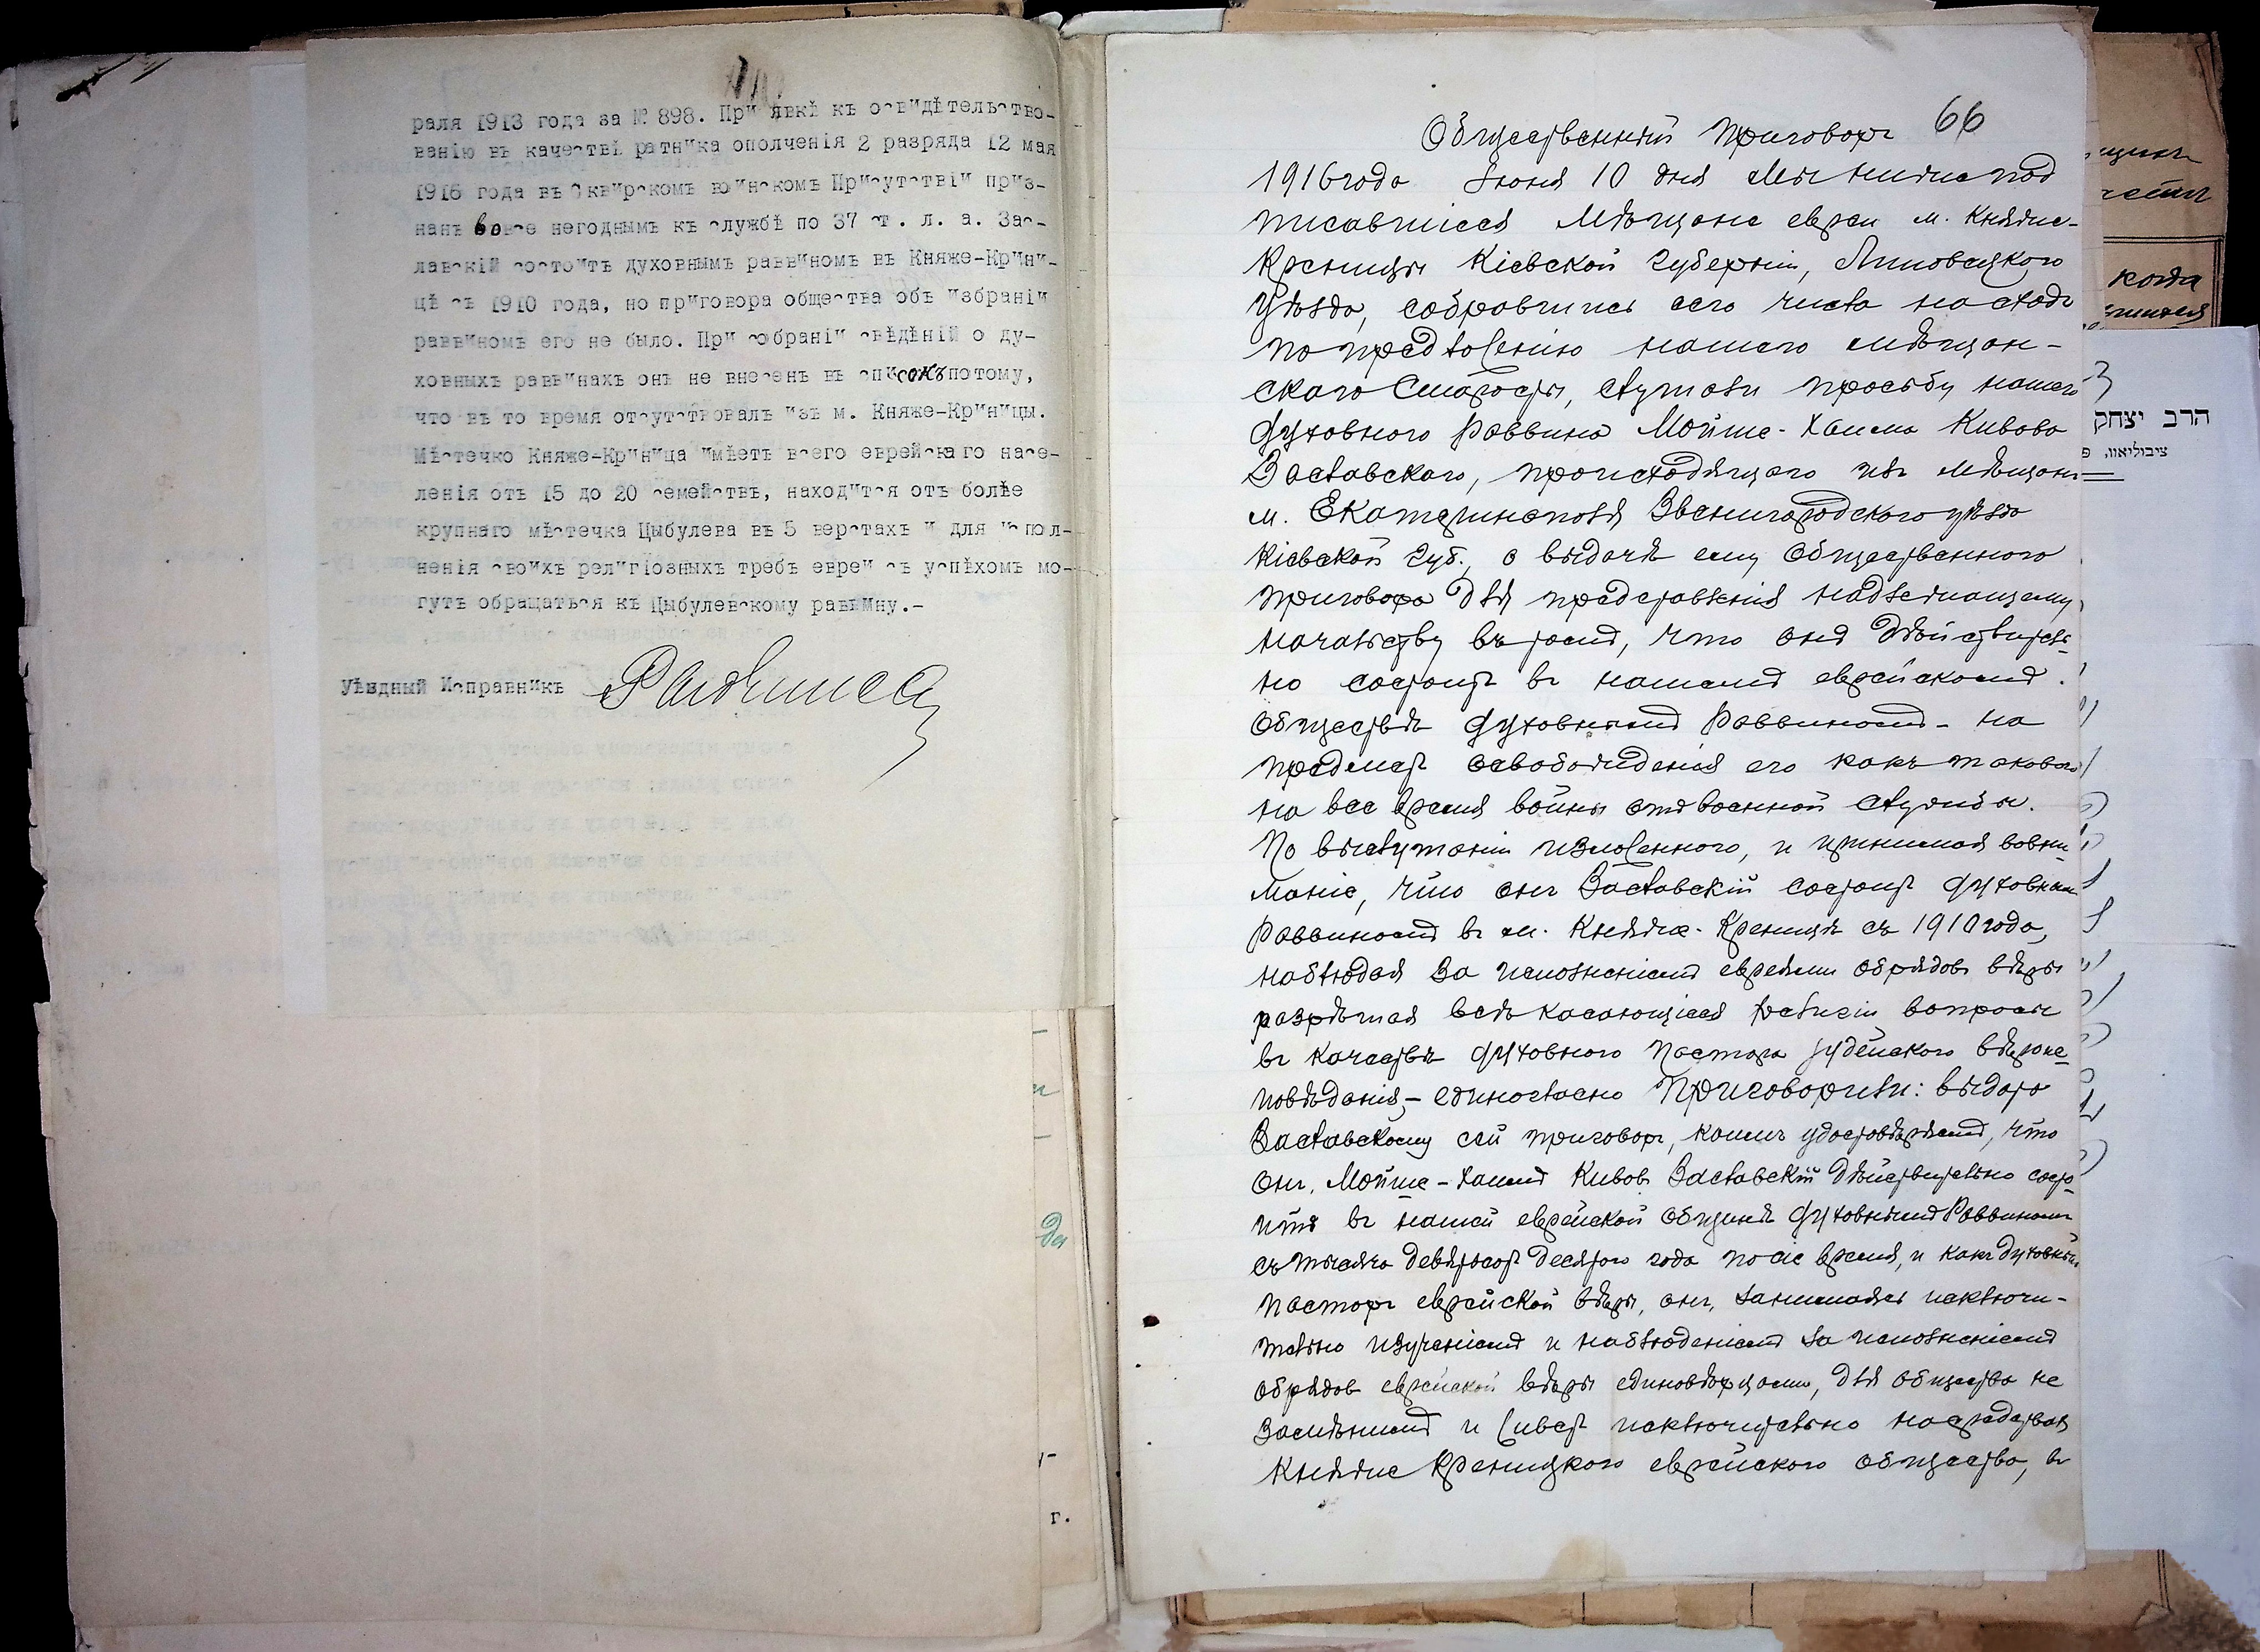 раля 1913 года за № 898. При явкѣ къ освидѣтельство-
ванію въ качествѣ ратника ополченія 2 разряда 12 мая
1916 года въ Сквирскомъ воинскомъ Присутствіи приз-
нанъ вовсе негоднымъ къ службѣ по 37 ст. л. а. Зас-
лавскій состоитъ духовнымъ раввиномъ въ Княже-Крини-
цѣ съ 1910 года, но приговора общества объ избраніи
раввиномъ его не было. При собраніи свѣдѣній о ду-
ховныхъ раввинахъ онъ не внесенъ въ списокъ потому,
что въ то время отсутствовалъ изъ м. Княже-Криницы.
Мѣстечко Княже-Криница имѣетъ всего еврейскаго насе-
ленія отъ 15 до 20 семействъ, находится отъ болѣе
крупнаго мѣстечка Цыбулева въ 5 верстахъ и для испол-
ненія своихъ религіозныхъ требъ евреи съ успѣхомъ мо-
гутъ обращаться къ Цыбулевскому раввину.-
Уѣздный Исправникъ
66
Общественный приговоръ
1916 года Іюня 10 дня Мы нижепод
писавшіеся Мѣщане евреи м. Княже-
Креницы Кіевской Губерніи, Липовецкого
Уѣзда, собравшись сего числа на сходъ
по предложенію нашего мѣщан-
ского Старосты, слушали просьбу нашего
духовного Раввина Мойше-Хаима Кивова
Заславского, происходящего изъ мѣщанъ
м. Екатеринополя Звенигородского уѣзда
Кіевской Губ., о выдачѣ ему Общественного
приговора для представленія надлежащему
начальству въ томъ, что онъ дѣйствитель-
но состоитъ въ нашемъ еврейскомъ
Обществѣ духовнымъ Раввиномъ - на
предметъ освобожденія его какъ такового
на все время войны отъ военной службы.
По выслушаніи изложенного, и принимая вовни-
маніе, что онъ Заславскій состоитъ духовнымъ
Раввиномъ въ м. Княже-Креницѣ съ 1910 года,
наблюдая за исполненіемъ евреями обрядовъ вѣры
разрѣшая всѣ касающіеся религіи вопросы
въ качествѣ духовного Пастора Іудейского вѣроис-
повѣданія,- единогласно Приговорили: выдать
Заславскому сей приговоръ, коимъ удостовѣряемъ, что
онъ, Мойше-Хаимъ Кивовъ Заславскій дѣйствительно состо-
итъ въ нашей еврейской общинѣ духовнымъ Раввиномъ
съ тысяча девятьсотъ десятого года по сіе время, и какъ духовный
пасторъ еврейской вѣры, онъ, занимаясь исключи-
тельно изученіемъ и наблюденіемъ за исполненіемъ
обрядовъ еврейской вѣры единовѣрцами, для общества не
замѣнимъ и живетъ исключительно на средства
Княже Креницкого еврейского общества, въ
когда
הרב יצחק
ציבוליאוו, פ
да
г.